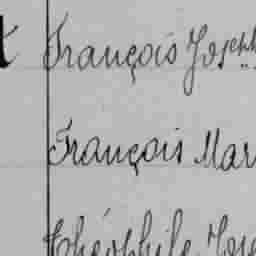 François Joseph
François Mar
Théophile Jose